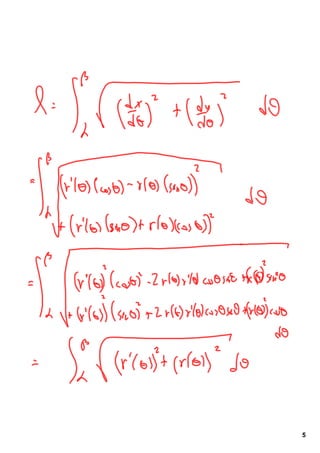 l = ∫_α^β √( (dx/dθ)² + (dy/dθ)² ) dθ
= ∫_α^β √( (r'(θ)(cosθ) - r(θ)(sinθ))²
+ (r'(θ)(sinθ) + r(θ)(cosθ))² ) dθ
= ∫_α^β √( (r'(θ))²(cosθ)² - 2r(θ)r'(θ)cosθsinθ + (r(θ))²sin²θ
+ (r'(θ))²(sinθ)² + 2r(θ)r'(θ)cosθsinθ + (r(θ))²cos²θ )
dθ
= ∫_α^β √( (r'(θ))² + (r(θ))² ) dθ
5